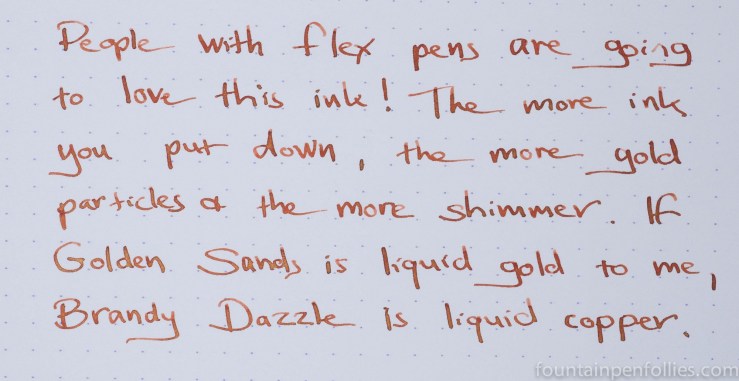 People with flex pens are going
to love this ink! The more ink
you put down, the more gold
particles & the more shimmer. If
Golden Sands is liquid gold to me,
Brandy Dazzle is liquid copper.
fountainpenfollies.com